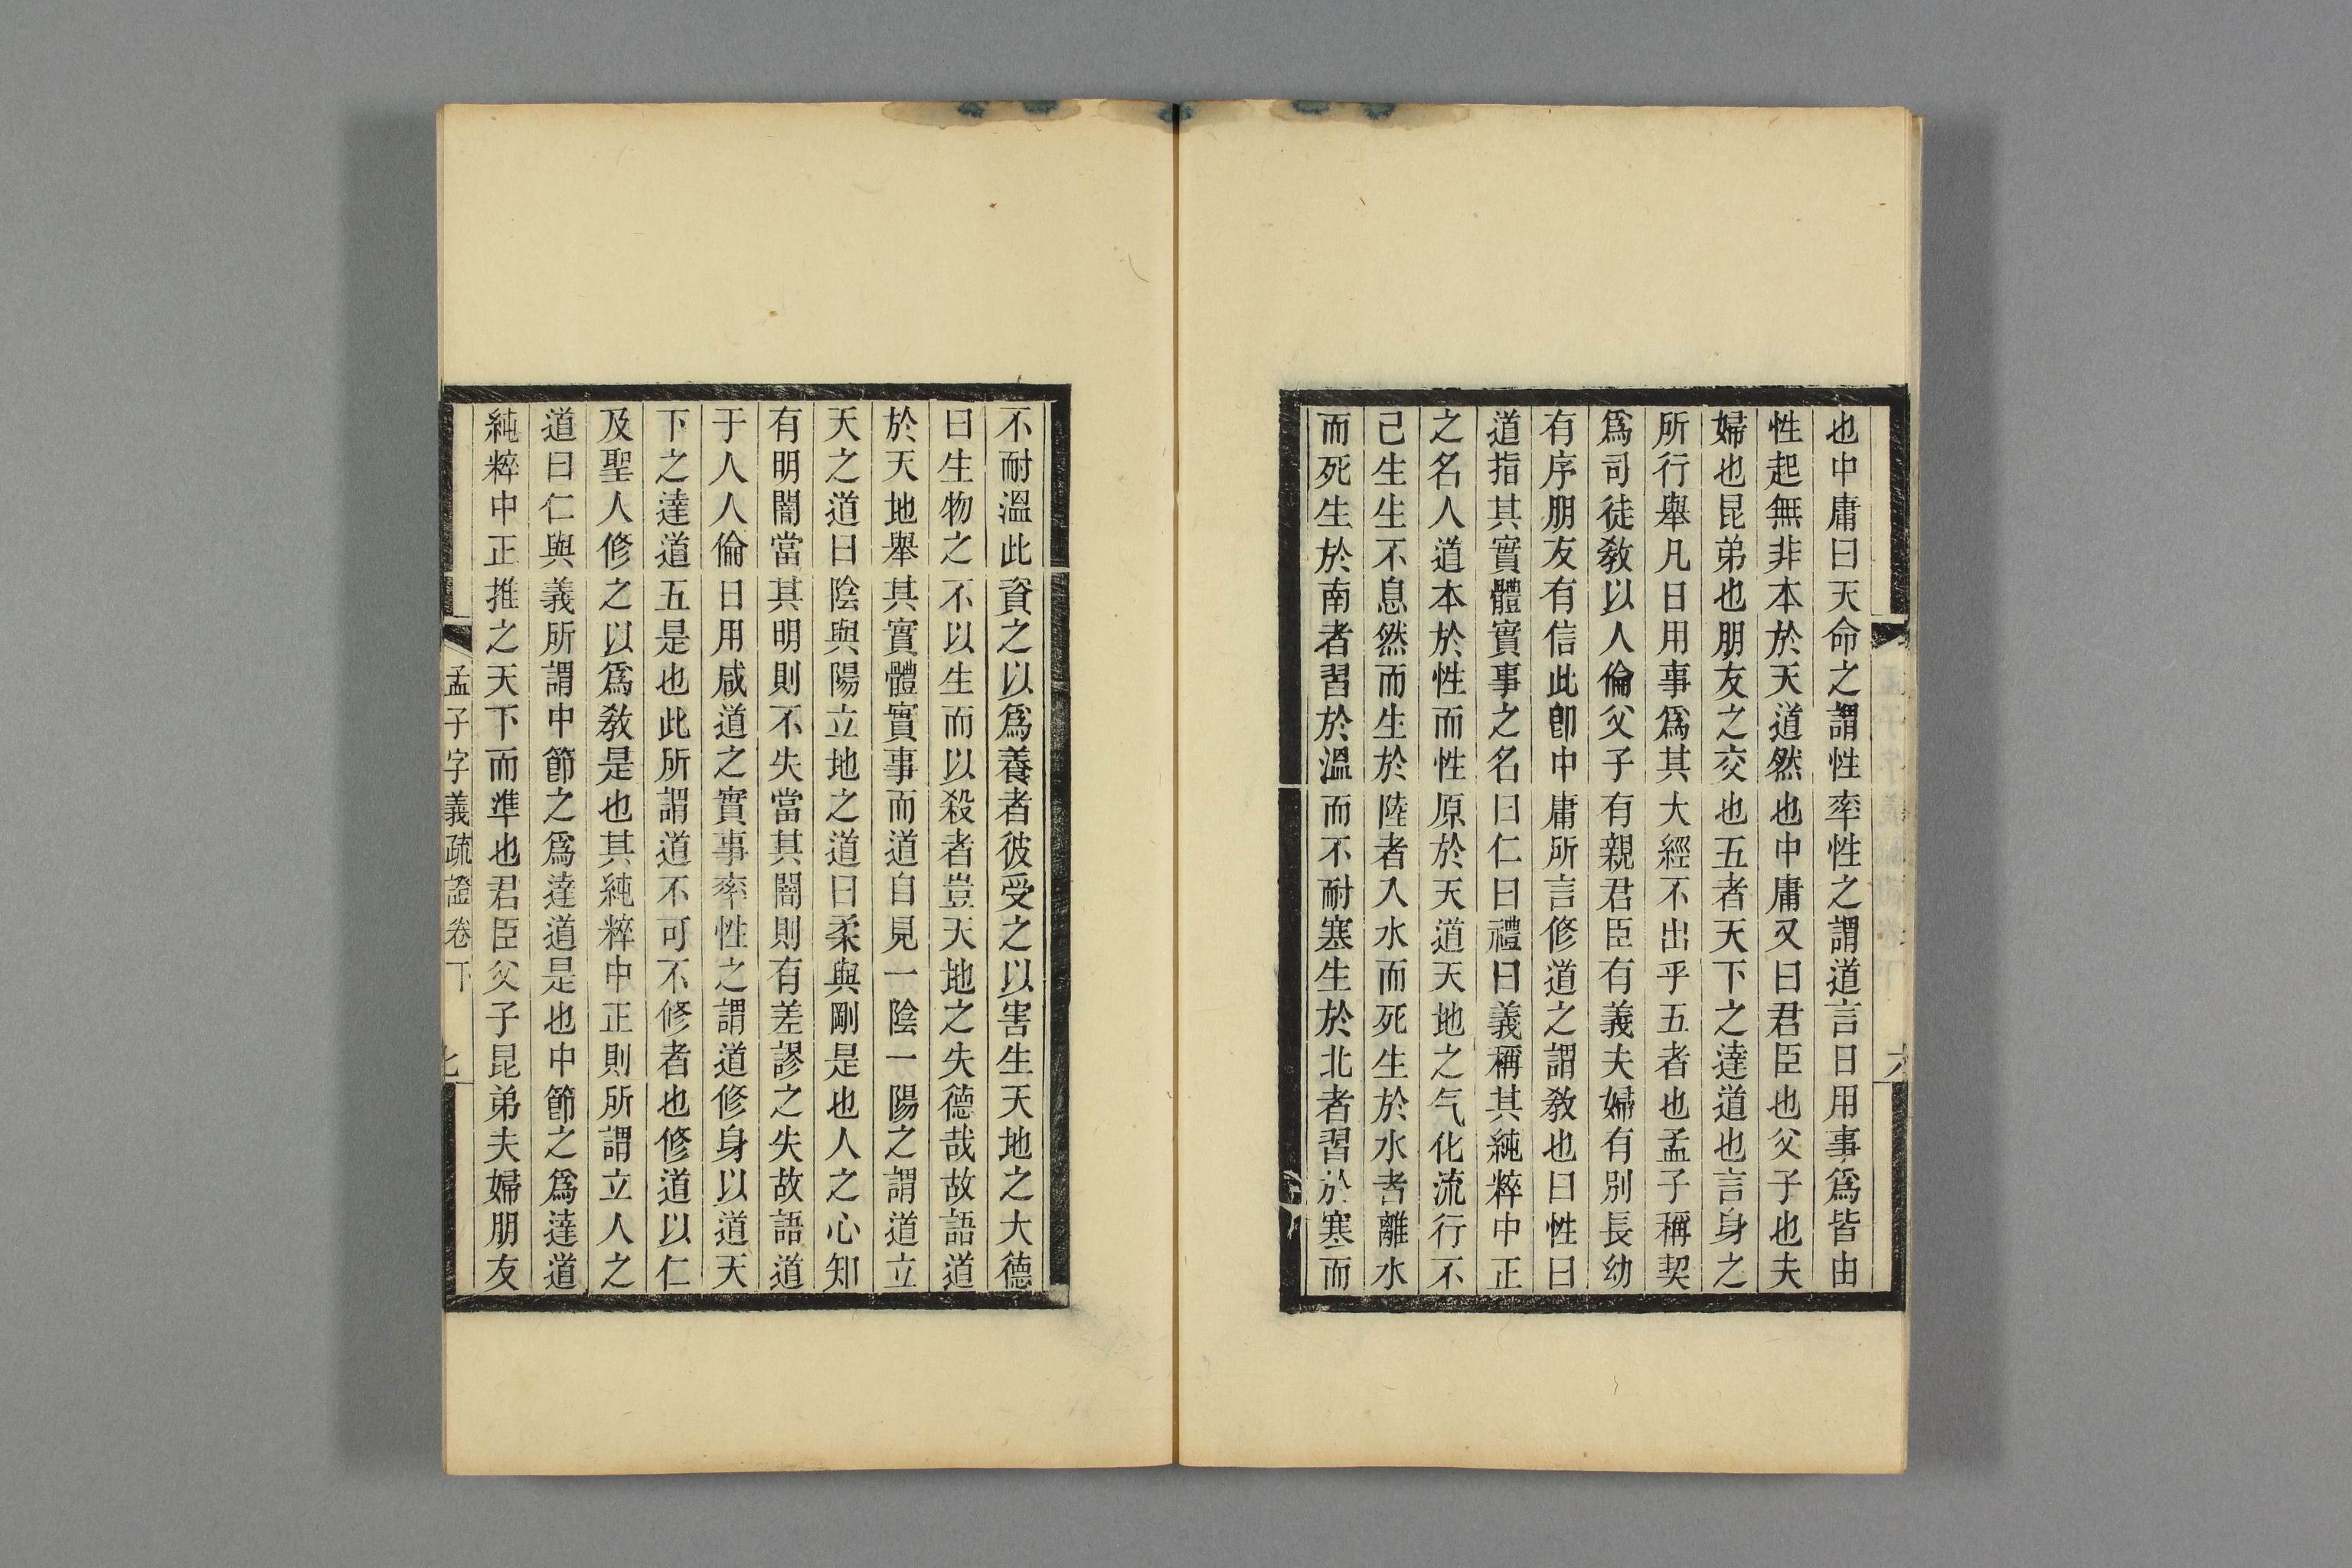 也中庸曰天命之謂性率性之謂道言日用事爲皆由
性起無非本於天道然也中庸又曰君臣也父子也夫
婦也昆弟也朋友之交也五者天下之達道也言身之
所行舉凡日用事爲其大經不出乎五者也孟子稱契
爲司徒敎以人倫父子有親君臣有義夫婦有別長幼
有序朋友有信此卽中庸所言修道之謂敎也曰性曰
道指其實體實事之名曰仁曰禮曰義稱其純粹中正
之名人道本於性而性原於天道天地之气化流行不
已生生不息然而生於陸者入水而死生於水者離水
而死生於南者習於溫而不耐寒生於北者習於寒而
不耐溫此資之以爲養者彼受之以害生天地之大德
曰生物之不以生而以殺者豈天地之失德哉故語道
於天地舉其實體實事而道自見一陰一陽之謂道立
天之道曰陰與陽立地之道曰柔與剛是也人之心知
有明闇當其明則不失當其闇則有差謬之失故語道
于人人倫日用咸道之實事率性之謂道修身以道天
下之達道五是也此所謂道不可不修者也修道以仁
及聖人修之以爲敎是也其純粹中正則所謂立人之
道曰仁與義所謂中節之爲達道是也中節之爲達道
純粹中正推之天下而準也君臣父子昆弟夫婦朋友
孟子字義疏證卷下